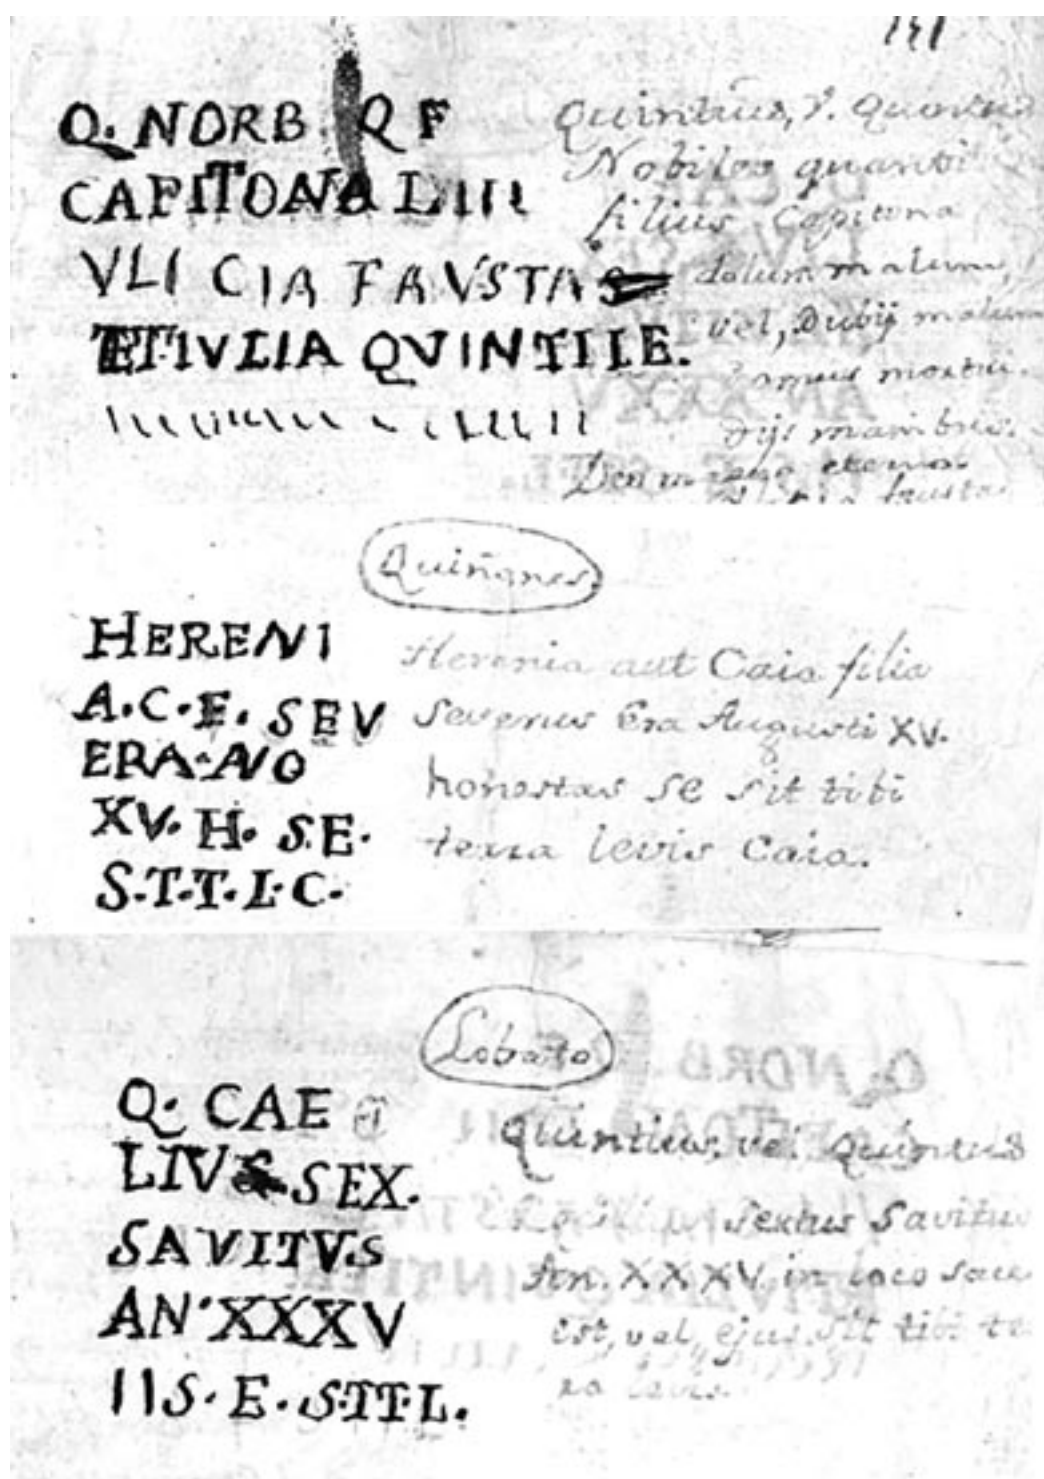 Q. NORB Q F
CAPITONA LIII
VLI CIA FAVSTA
ET IVLIA QVINTILE.
Quintius, v. Quintus
Nobiles quanti
filius Capitona
dolum malum,
vel, Dubij malum
mortui.
dijs manibus.
fausta
Quiñones.
HERENI
A.C.F. SEV
ERA·A·NO
XV. H. SE.
S.T.T.L.C.
Herenia aut Caia filia
Severus Era Augusti XV.
honestas se sit tibi
terra levis Caia.
Lobato
Q. CAE
LIVS SEX.
SAVITVS
AN'XXXV
IIS. E. S.TT.L.
Quintius, vel Quintus
Sextus Savitus
An. XXXV. in loco sace
est, vel, ejus. Sit tibi te
ra levis.